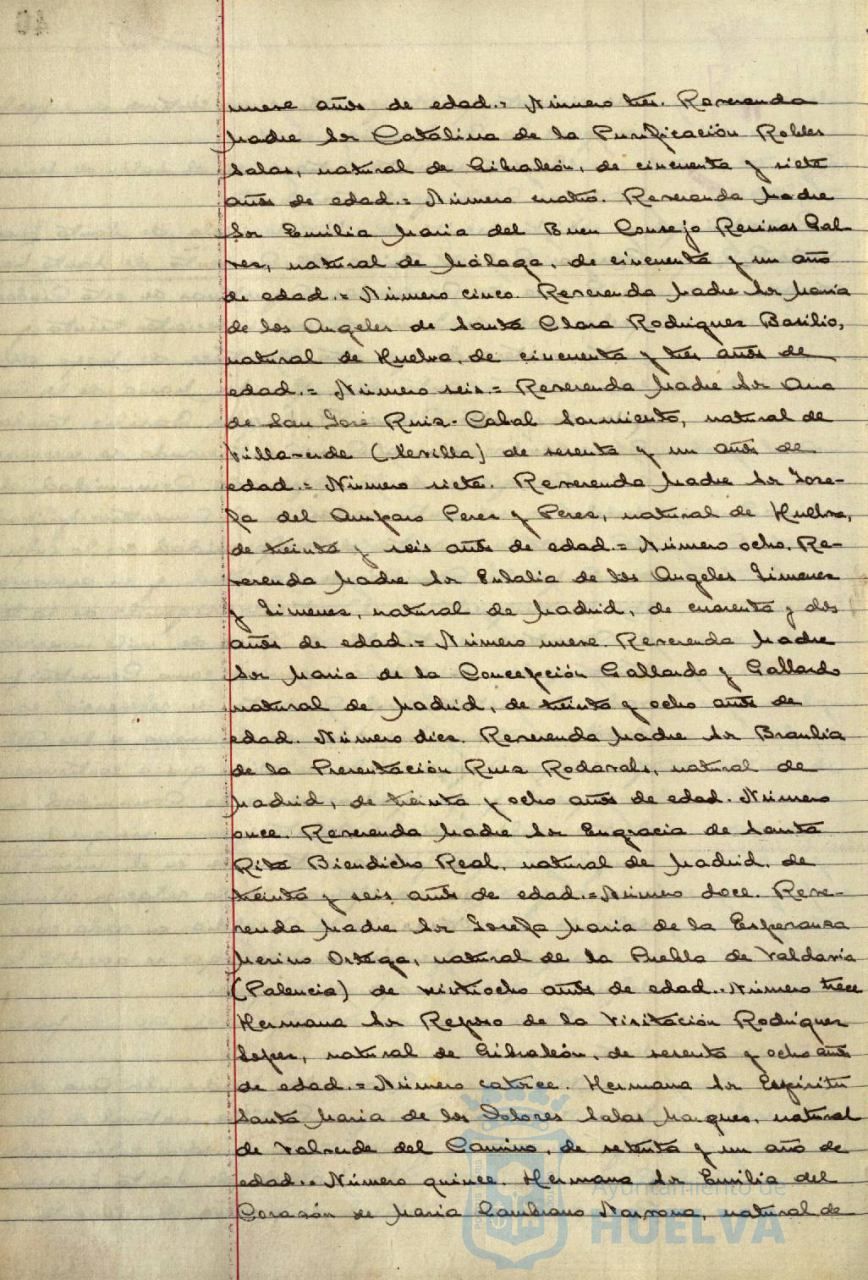 nueve años de edad.= Número tres. Reverenda
Madre Sor Catalina de la Purificación Robles
Salas, natural de Gibraleón, de cincuenta y siete
años de edad.= Número cuatro. Reverenda Madre
Sor Emilia Maria del Buen Consejo Recinas Gal-
vez, natural de Málaga, de cincuenta y un año
de edad.= Número cinco. Reverenda Madre Sor María
de los Angeles de Santa Clara Rodriguez Basilio,
natural de Huelva, de cincuenta y tres años de
edad.= Número seis.= Reverenda Madre Sor Ana
de San José Ruiz-Cabal Sarmiento, natural de
Villaverde (Sevilla) de sesenta y un años de
edad.= Número siete. Reverenda Madre Sor Jose-
fa del Amparo Perez y Perez, natural de Huelva,
de treinta y seis años de edad.= Número ocho. Re-
verenda Madre Sor Eulalia de los Angeles Jimenez
y Jimenez, natural de Madrid, de cuarenta y dos
años de edad.= Número nueve. Reverenda Madre
Sor Maria de la Concepción Gallardo y Gallardo
natural de Madrid, de treinta y ocho años de
edad. Número diez. Reverenda Madre Sor Braulia
de la Presentación Ruiz natural de
Madrid, de treinta y ocho años de edad. Número
once. Reverenda Madre Sor Engracia de Santa
Rita Biendicho Real, natural de Madrid, de
treinta y seis años de edad.= Número doce. Reve-
renda Madre Sor Josefa Maria de la Esperanza
Merino Ortega, natural de la Puebla de Valdavia
(Palencia) de veintiocho años de edad.. Número trece
Hermana Sor Reposo de la Visitación Rodriguez
Lopez, natural de Gibraleón, de sesenta y ocho años
de edad.= Número catorce. Hermana Sor Espíritu
Santo Maria de los Dolores Salas Marquez, natural
de Valverde del Camino, de setenta y un año de
edad.= Número quince. Hermana Sor Emilia del
Corazón de Maria Zambrano Narrona, natural de
Ayuntamiento de
HUELVA
40